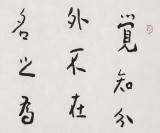 覺知分
外不在
名之為